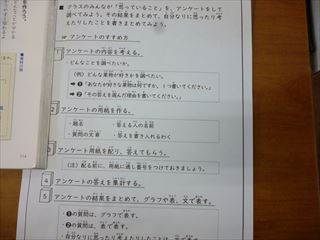 ■ クラスのみんなが「思っていること」を、アンケートをし
て調べてみよう。その結果をまとめて、自分なりに思ったり考
えたりしたことを書きまとめてみよう。
アンケートのすすめ方
1 アンケートの内容を考える。
どんなことを調べたいか。
(例) どんな果物が好きかを調べたい。
→ ❶「あなたが好きな果物は何ですか。1つ書いてください。」
→ ❷「その答えを選んだ理由を書いてください。」
2 アンケートの用紙を作る。
・題名 ・答える人の名前
・質問の文章 ・答えを書き入れるわく
3 アンケート用紙を配り、答えてもらう。
(注) 配る前に、用紙に通し番号をつけておきましょう。
4 アンケートの答えを集計する。
5 アンケートの結果をまとめて、グラフや表、文で表す。
・❶の質問は、グラフで表す。
・❷の質問は、表で表す。
・自分なりに思ったり考えたりしたことは、文で表す。